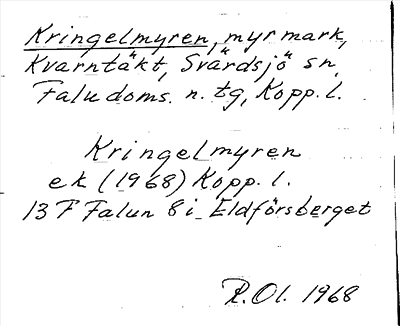 Kringelmyren, myrmark,
Kvarntäkt, Svärdsjö sn,
Falu doms. n. tg, Kopp. l.
Kringelmyren
ek (1968) Kopp. l.
13 F Falun 8 i Eldforsberget
R. Ol. 1968